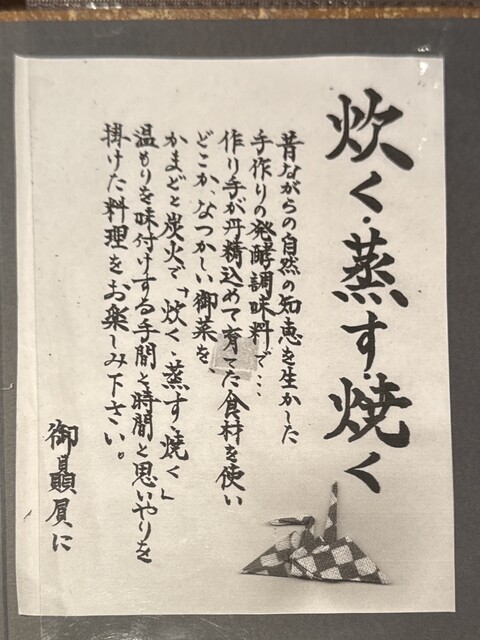 炊く・蒸す焼く
昔ながらの自然の知恵を生かした
手作りの発酵調味料で…
作り手が丹精込めて育てた食材を使い
どこか、なつかしい御菜を
かまどと炭火で「炊く・蒸す・焼く」
温もりを味付けする手間と時間と思いやりを
掛けた料理をお楽しみ下さい。
御贔屓に